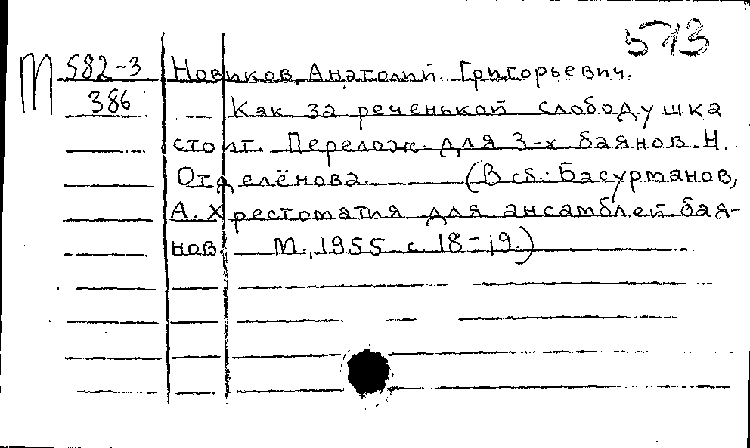 573
М 582-3 Новиков, Анатолий Григорьевич.
386 Как за реченькой слободушка
стоит. Перелож. для 3-х баянов Н.
Отделёнова. (В сб.: Басурманов,
А. Хрестоматия для ансамблей бая-
нов. М., 1955 с. 18-19.)